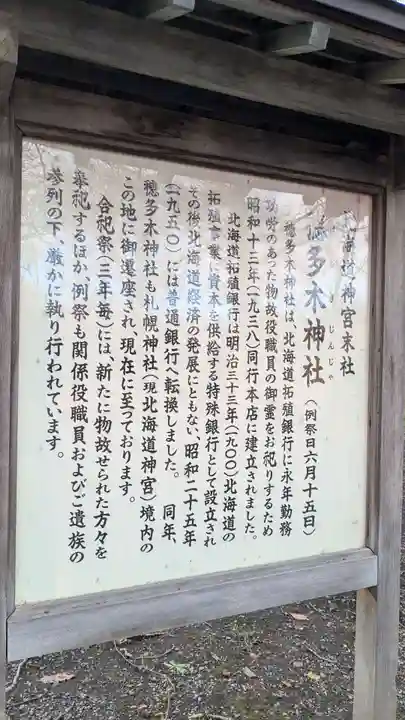 北海道神宮末社
穂多木神社（例祭日六月十五日）
じんじゃ
穂多木神社は、北海道拓殖銀行に永年勤務
功労のあった物故役職員の御霊をお祀りするため
昭和十三年（一九三八）同行本店に建立されました。
北海道拓殖銀行は明治三十三年（一九〇〇）北海道の
拓殖事業に資本を供給する特殊銀行として設立され
その後、北海道経済の発展にともない、昭和二十五年
（一九五〇）には普通銀行へ転換しました。　同年、
穂多木神社も札幌神社（現北海道神宮）境内の
この地に御遷座され、現在に至っております。
合祀祭（三年毎）には、新たに物故せられた方々を
奉祀するほか、例祭も関係役職員およびご遺族の
参列の下、厳かに執り行われています。